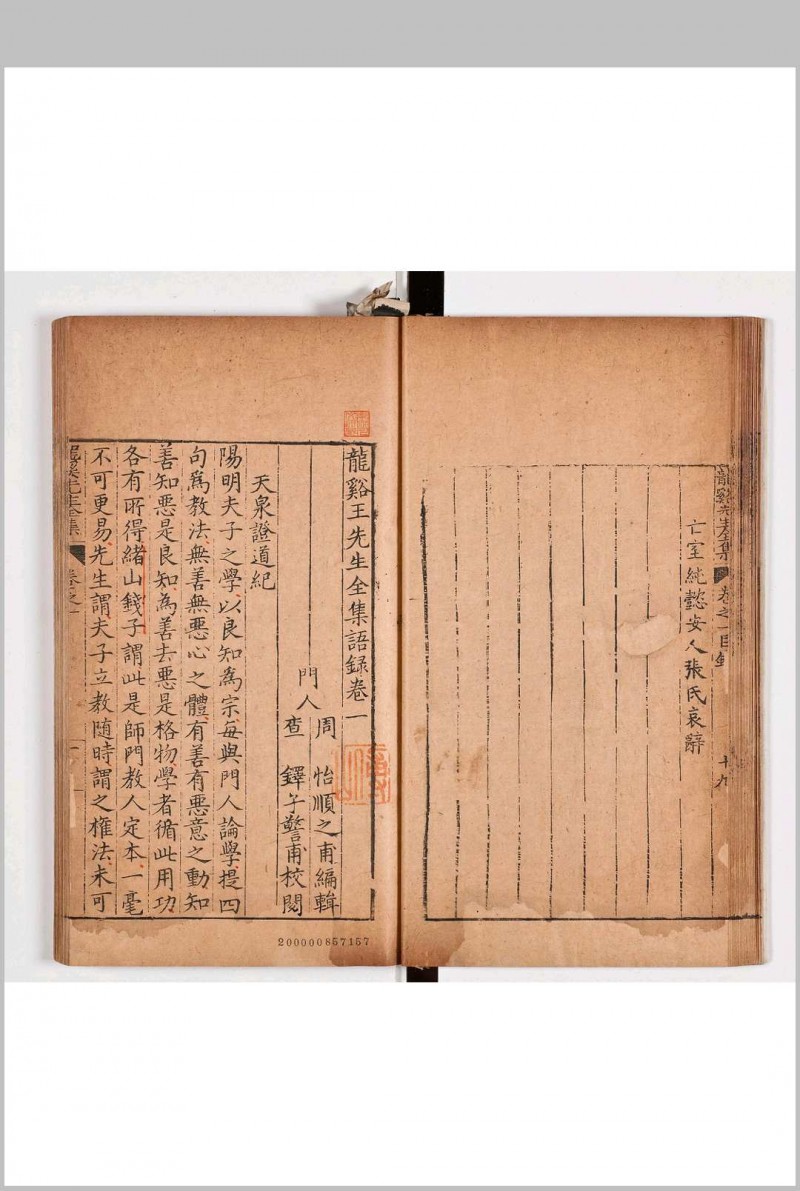 亡室純懿安人張氏哀辭
龍谿先生全集 卷之一目錄 十九
龍谿王先生全集語録卷一
門人
周怡順之甫編輯
查鐸子警甫校閱
天泉證道紀
陽明夫子之學以良知為宗每與門人論學提四
句為教法無善無惡心之體有善有惡意之動知
善知惡是良知為善去惡是格物學者循此用功
各有所得緒山錢子謂此是師門教人定本一毫
不可更易先生謂夫子立教隨時謂之權法未可
龍谿先生全集 卷之一
200000857157